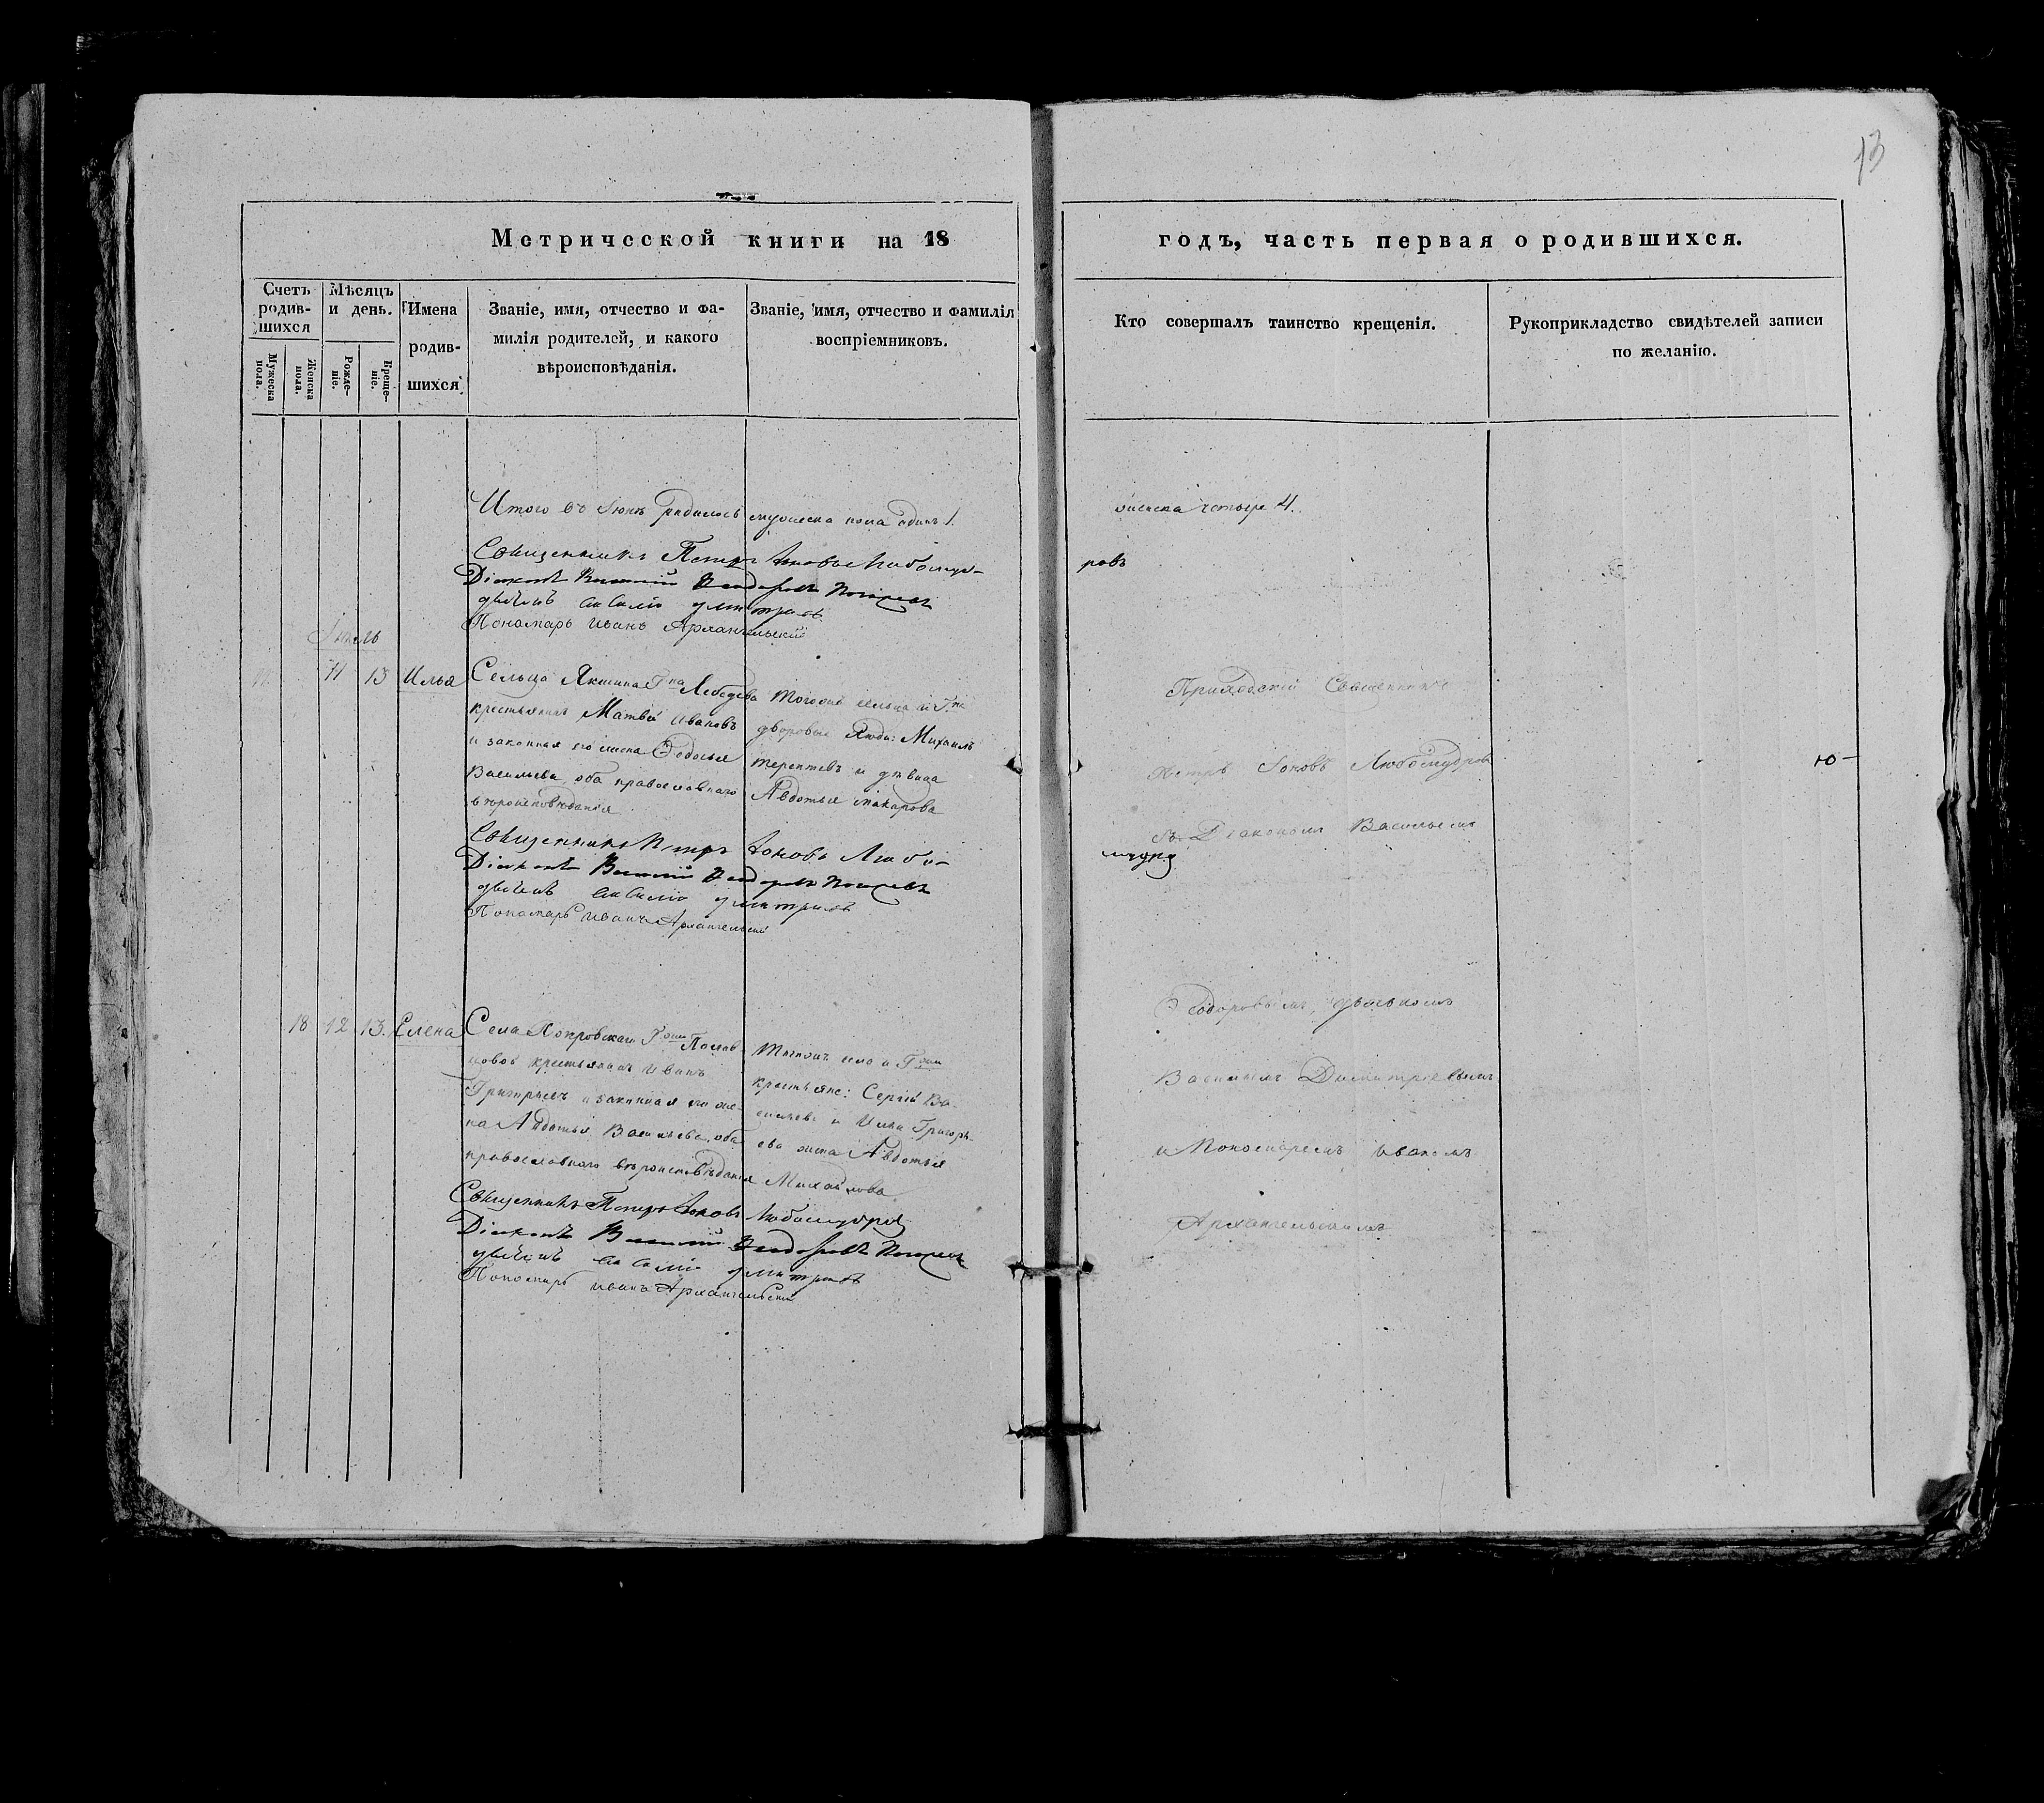 13
Метрической книги на 18
годъ, часть первая о родившихся.
Счетъ родив-шихся
Мужеска пола.
Женска пола.
Мѣсяцъ и день.
Рожде-ніе.
Креще-ніе.
Имена
родив-
шихся
Званіе, имя, отчество и фа-
милія родителей, и какого
вѣроисповѣданія.
Званіе, имя, отчество и фамилія
воспріемниковъ.
Кто совершалъ таинство крещенія.
Рукоприкладство свидѣтелей записи
по желанію.
Итого въ Іюнѣ родилось мужеска пола одинъ 1.
женска четыре 4.
Священникъ Петръ Іоновъ Любомуд-
ровъ
Діаконъ Василій Феодоровъ
дьячекъ Василій Дмитріевъ
Пономарь Иванъ Архангельскій
Іюль
11 13 Илья
Сельца Якшина Гна Лебедева
крестьянинъ Матвѣй Ивановъ
и законная его жена Федосья
Васильева, оба православнаго
вѣроисповѣданія
Тогожъ сельца и Гна
дворовые люди: Михаилъ
Терентьевъ и дѣвица
Авдотья Макарова
Приходскій Священникъ
Петръ Іоновъ Любомудровъ
съ Діакономъ Васильемъ
Ю-
Священникъ Петръ Іоновъ Любо-
мудро
Діаконъ Василій Феодоровъ
дьячекъ Василій Дмитріевъ
Пономарь Иванъ Архангельскій
18 12 13. Елена
Села Покровскаго Гжи
крестьянинъ Иванъ
Григорьевъ и законная его же-
на Авдотья Васильева, оба
православнаго вѣроисповѣданія
Тогожъ села и Гжи
крестьяне: Сергѣй Ва-
сильевъ и Ильи Григорь-
ева жена Авдотья
Михайлова
Феодоровымъ, дьячкомъ
Васильемъ Димитріевымъ
и Пономаремъ Иваномъ
Архангельскимъ
Священникъ Петръ Іоновъ Любомудровъ
Діаконъ Василій Феодоровъ
дьячекъ Василій Дмитріевъ
Пономарь Иванъ Архангельскій